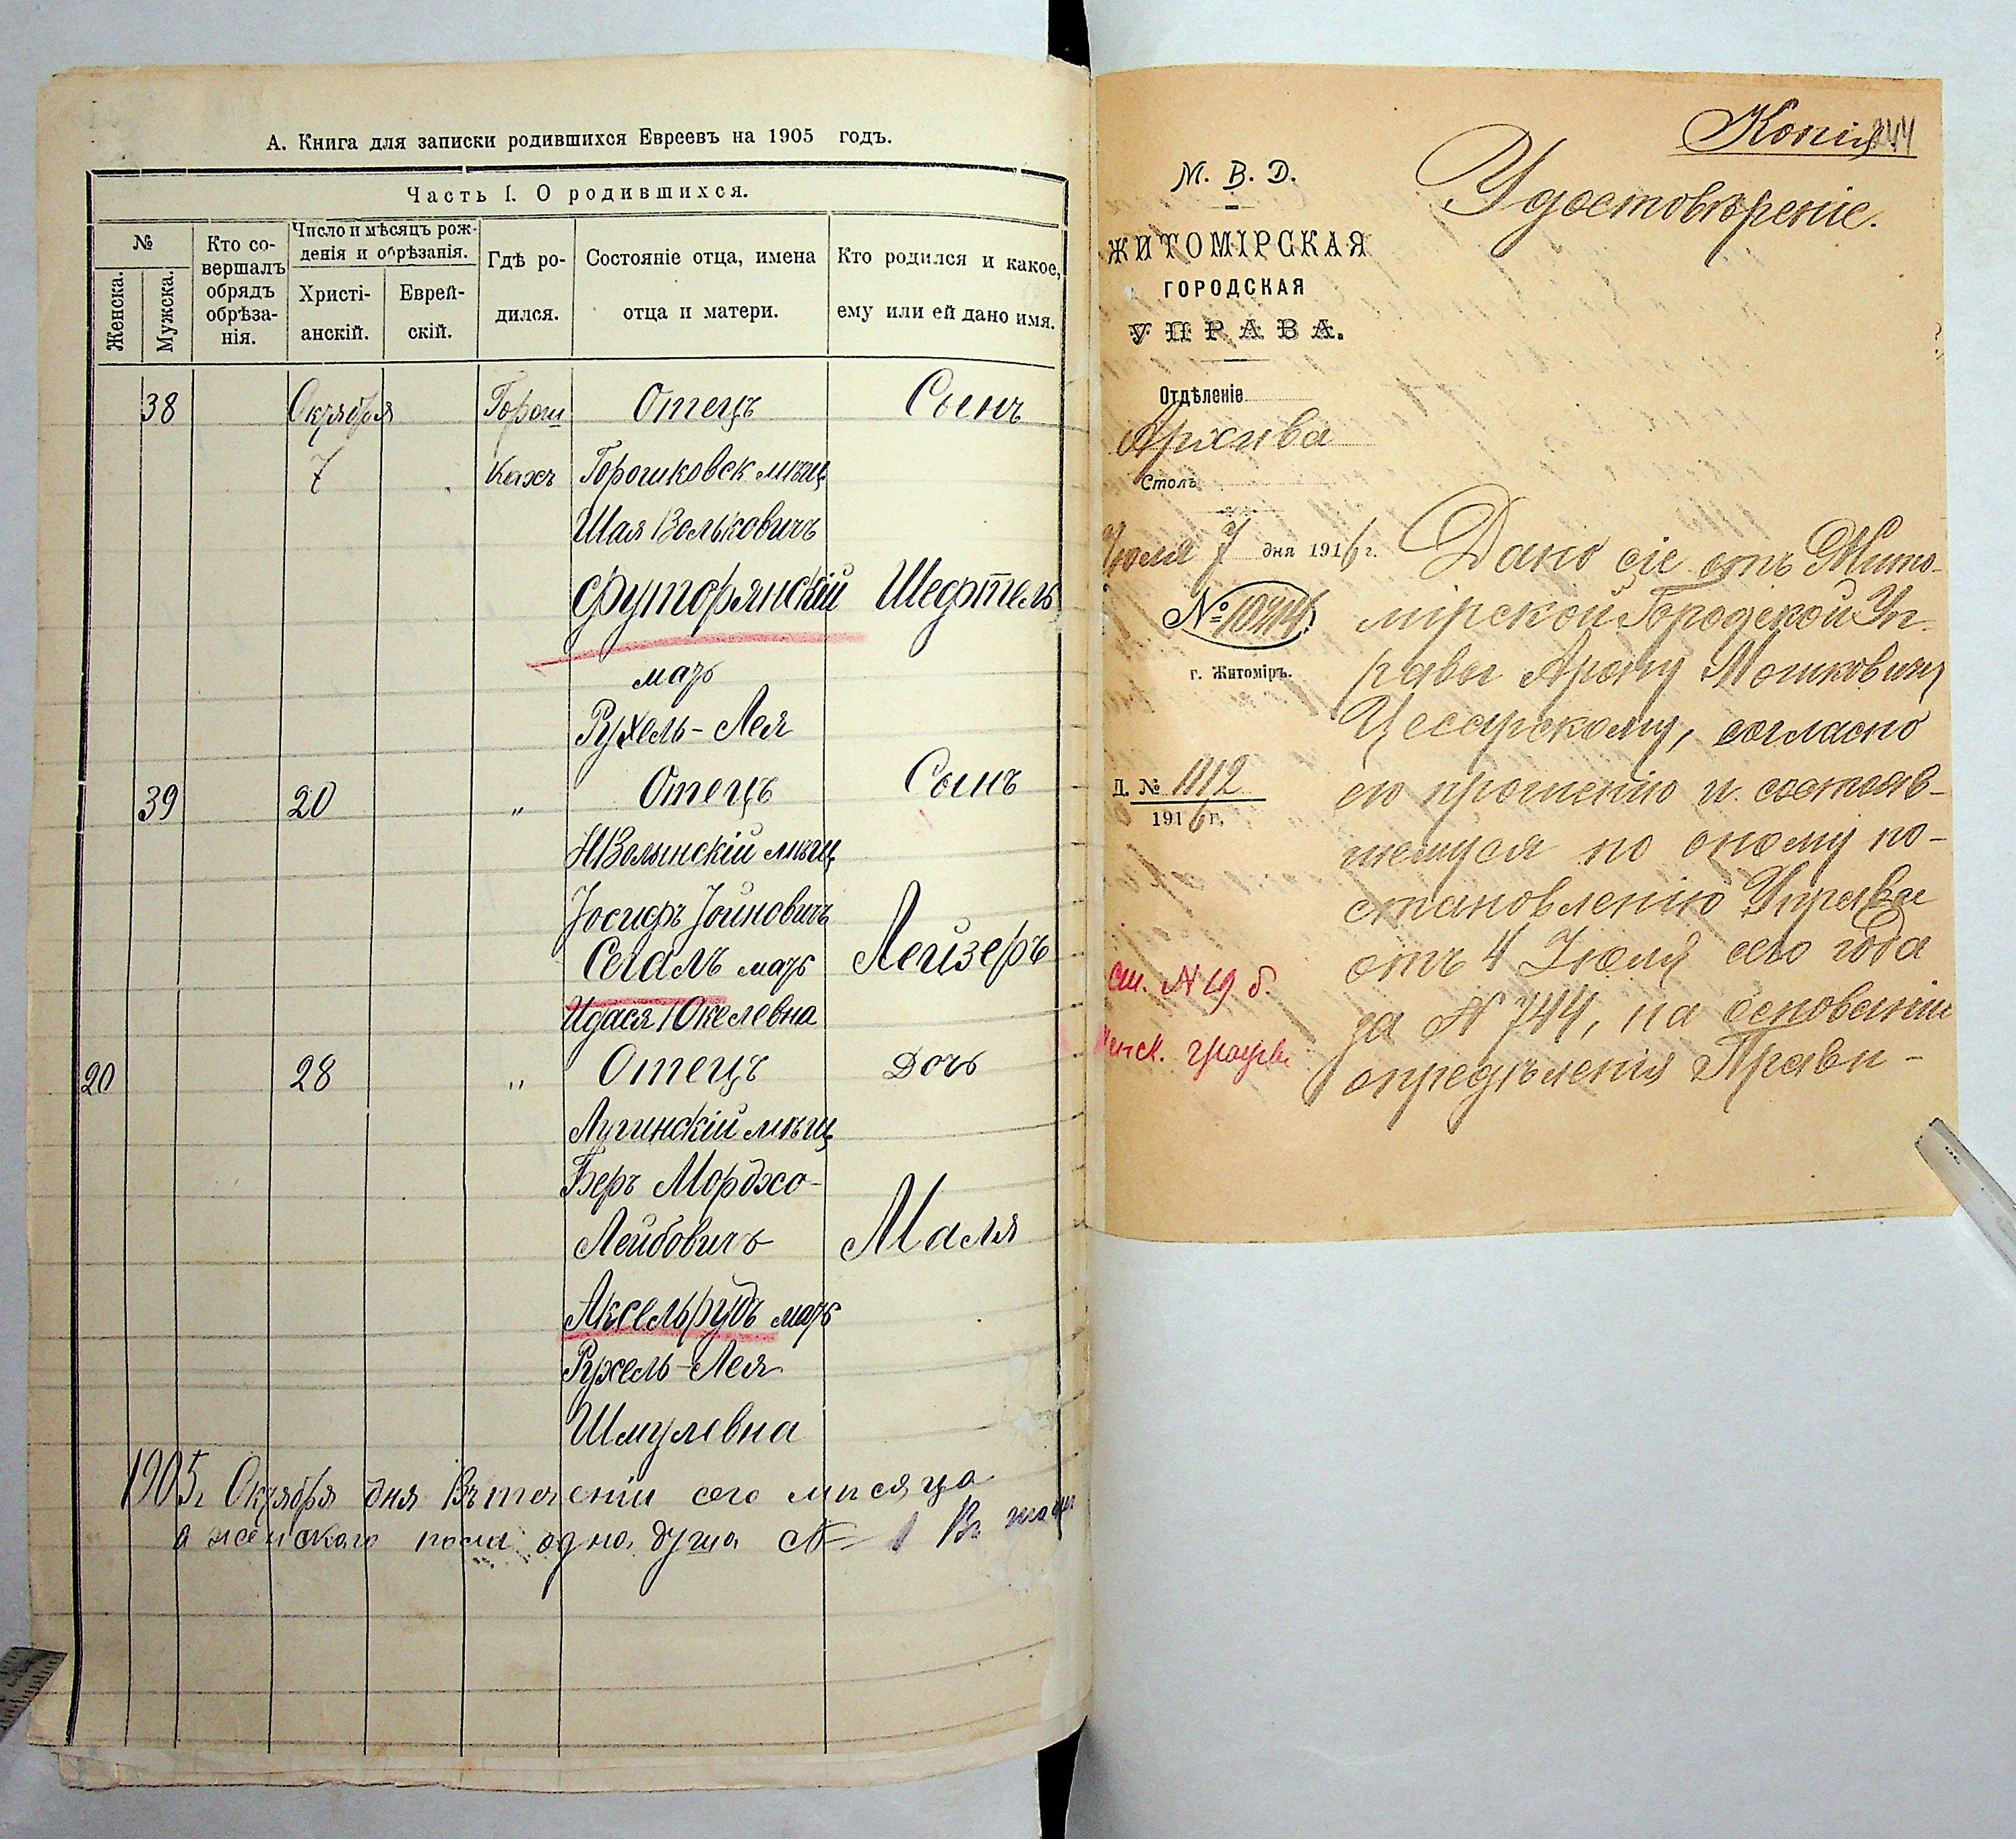 А. Книга для записки родившихся Евреевъ на 1905 годъ.
Часть I. О родившихся.
№
Женска.
Мужска.
Кто со-
вершалъ
обрядъ
обрѣза-
нія.
Число и мѣсяцъ рож-
денія и обрѣзанія.
Христі-
анскій.
Еврей-
скій.
Гдѣ ро-
дился.
Состояніе отца, имена
отца и матери.
Кто родился и какое,
ему или ей дано имя.
38 Октября Горош Отецъ Сынъ
7 кахъ Горошковск мѣщ
Шая Волько­вичъ
Футорянскій Шефтель
мать
Рухель-Лея
39 20 " Отецъ Сынъ
НВолынскій мѣщ
Іосифъ Іойновичъ
Сегалъ мать Лейзеръ
Идася Юкелевна
20 28 " Отецъ Дочь
Лугинскій мѣщ
Беръ Мордхо-
Лейбовичъ Маля
Аксельрудъ мать
Рухель-Лея
Шмулевна
1905г Октября дня Въ теченіи сего мѣсяца
а женского пола одна душа № 1
Копія
244
М. В. Д.
ЖИТОМІРСКАЯ
ГОРОДСКАЯ
УПРАВА.
Отдѣленіе
Архива
Столъ
Іюля 7 дня 1916 г.
№ 10214
г. Житоміръ.
Д. № 1912
1916 г.
ст. № 19 б.
Женск.
Удостовѣреніе.
Дано сіе отъ Жито-
мірской Городской Уп-
равы Арону Мошковичу
Цесарскому, согласно
его прошенію и состояв-
шемуся по оному по-
становленію Управы
отъ 4 Іюля сего года
за № 744, на основаніи
опредѣленія Прави-